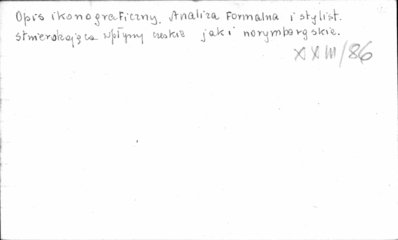 Opis ikonograficzny. Analiza formalna i stylist.
stwierdzająca wpływy czeskie jak i norymberskie.
XXIII/86